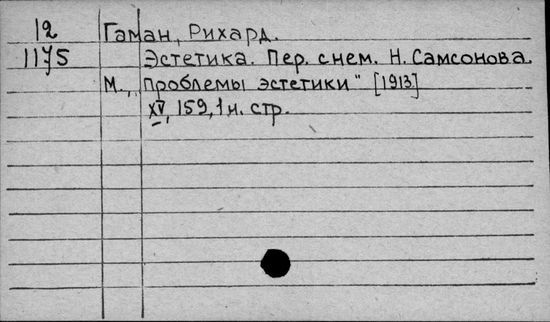 12 Гаман, Рихард.
1175 Эстетика. Пер. с нем. Н. Самсонова.
М., „Проблемы эстетики" [1913]
XV, 159, 1 н. стр.